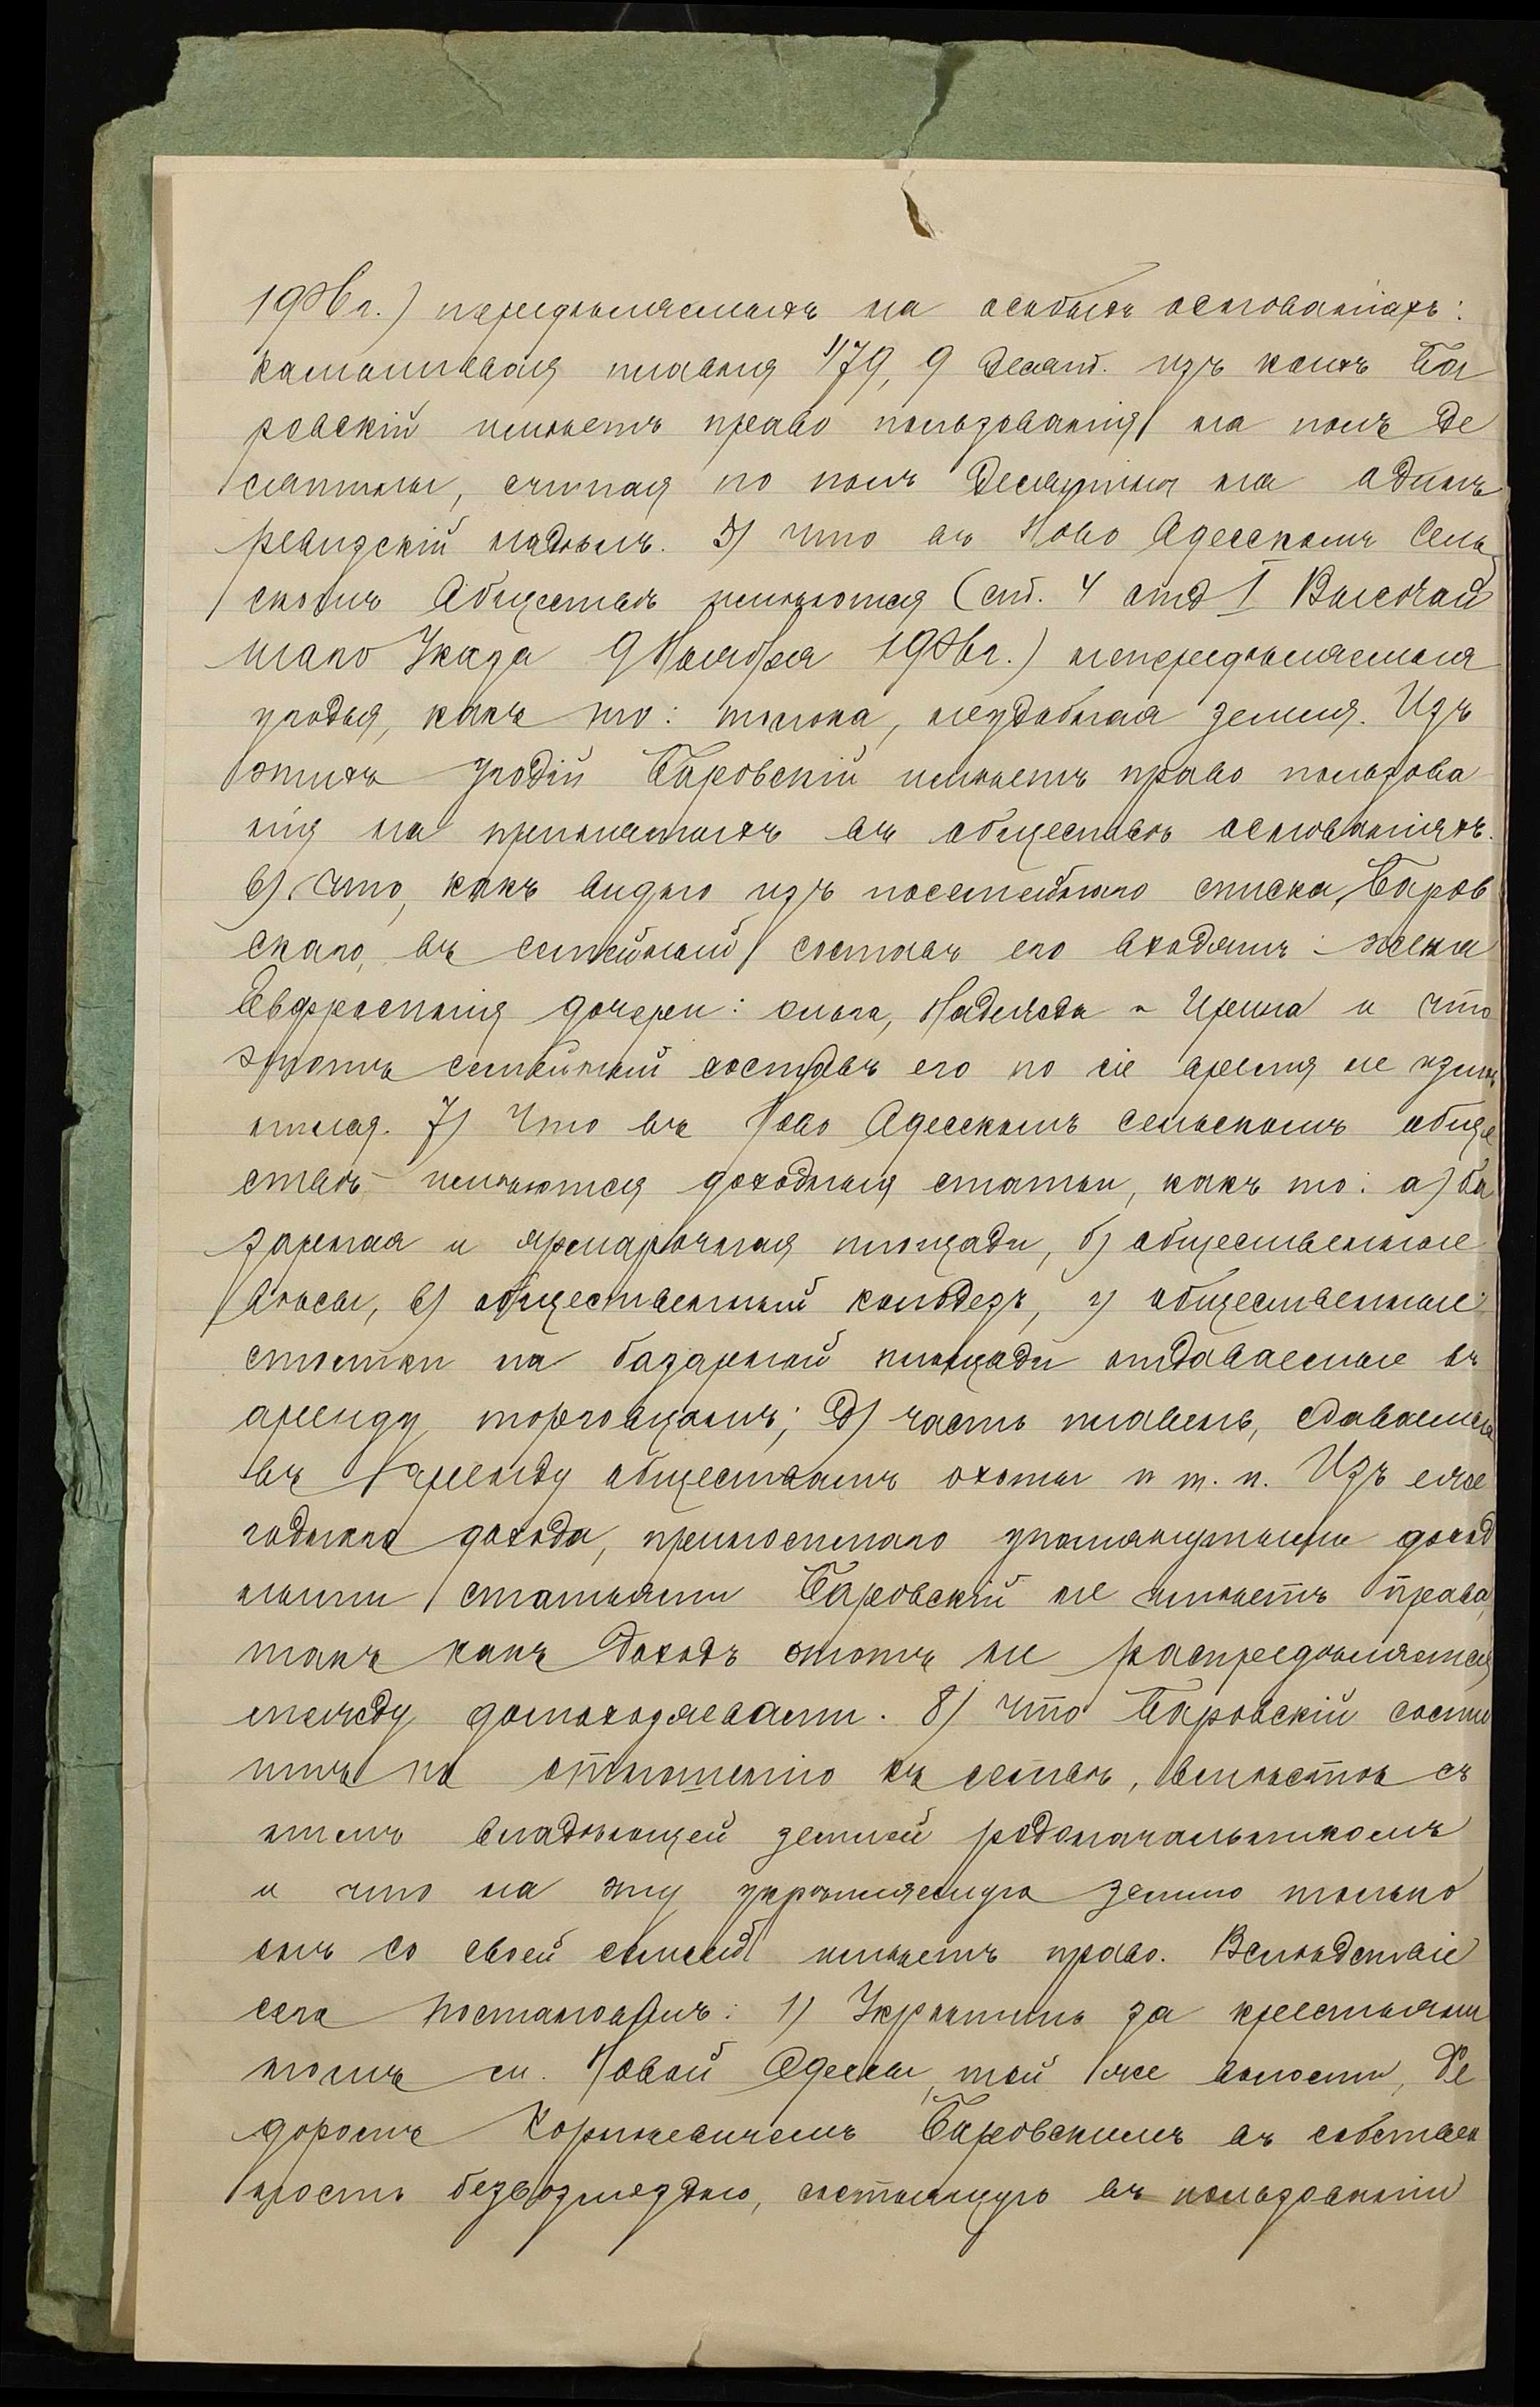 1906г.) передѣляемыхъ на особыхъ основаніахъ:
камышевая плавня 1179, 9 десят. изъ коихъ Ба
ровскій имѣетъ право пользованія на полъ де
сятины, считая по полъ десятины на адинъ
ревизскій надѣлъ. 5) Что въ Ново Адесскомъ Сель
скомъ Абществѣ имѣются (ст. 4 отд I Высочай
шаго Указа 9 Ноября 1906г.) непередѣляемыя
угодья, какъ то: толока, неудобная земля. Изъ
этихъ угодій Баровскій имѣетъ право пользова
нія на принятыхъ въ обществѣ основаніяхъ.
6) Что, какъ видно изъ посемейнаго списка, Баров
скаго, въ семейный составъ его входятъ: жена
Евфросинія дочери: Ольга, Надежда и Ирина и что
этотъ семейный составъ его по сіе время не измѣ
нился. 7) Что въ Ново Адесскомъ сельскомъ обще
ствѣ имѣются доходныя статьи, какъ то: а) ба
зарная и ярмарочная площади, б) общественные
вѣсы, в) общественный колодезь, г) общественные
столики на базарной площади отдаваемые въ
аренду торговцамъ; д) часть плавень, сдаваемая
въ аренду обществамъ охоты и т. п. Изъ еже
годнаго дохода, приносимаго упомянутыми доход
ными статьями Баровскій не имѣетъ права,
такъ какъ доходъ этотъ не распредѣляется
между домохозяевами. 8) Что Баровскій состо
итъ по отношенію къ семьѣ, вмѣстѣ съ
нимъ владѣющей землей родоначальникомъ
и что на эту укрѣпляемую землю только
онъ со своей семьей имѣетъ право. Вслѣдствіе
сего постановилъ: 1) Укрѣпить за крестьяни
номъ с. Новой Одессы, той же волости, Ѳе
доромъ Корнѣевичемъ Баровскимъ въ собствен
ность безвозмездно, состоящую въ пользованіи